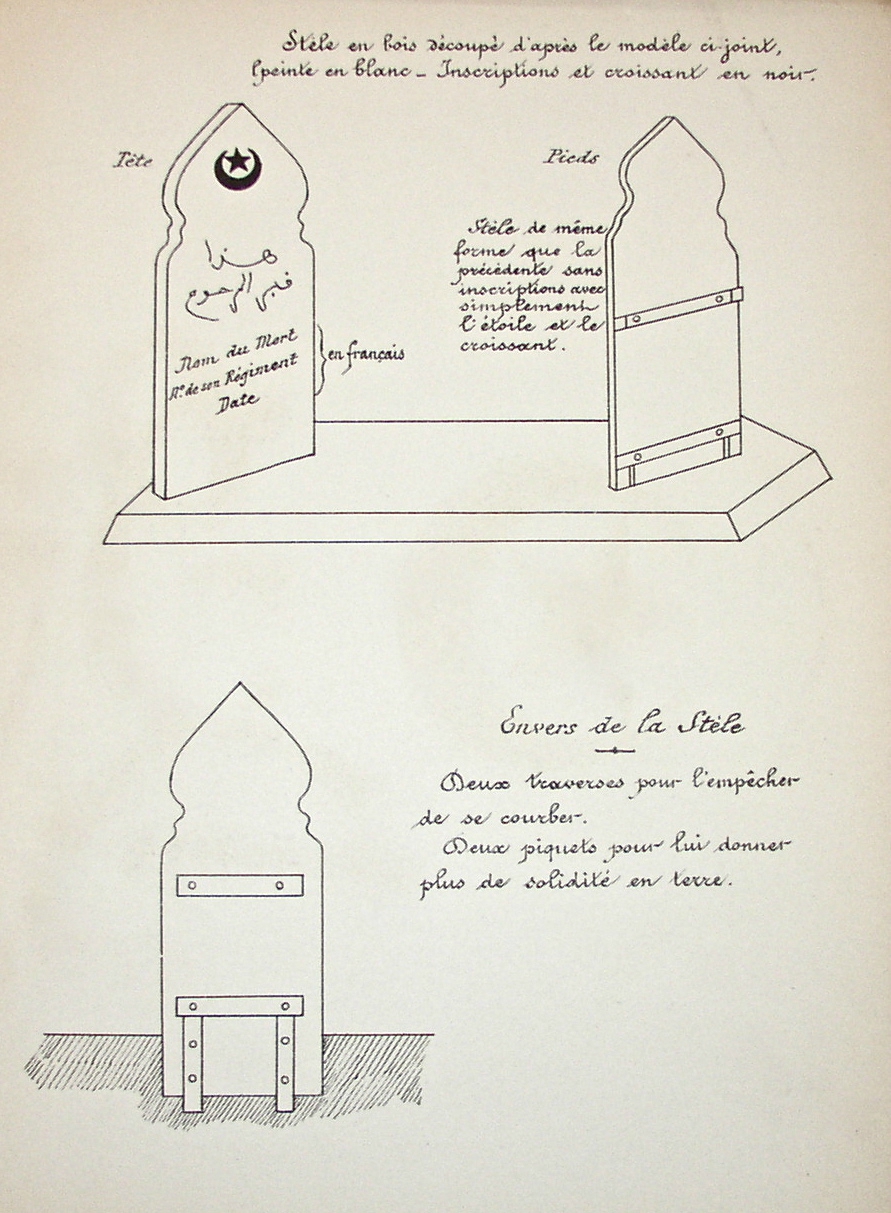 Stèle en bois découpé d'après le modèle ci-joint,
peinte en blanc - Inscriptions et croissant en noir.
Tête
Pieds
هذا
قبر المرحوم
Nom du Mort
N° de son Régiment
Date
en français
Stèle de même
forme que la
précédente sans
inscriptions avec
simplement
l'étoile et le
croissant.
Envers de la Stèle
Deux traverses pour l'empêcher
de se courber.
Deux piquets pour lui donner
plus de solidité en terre.